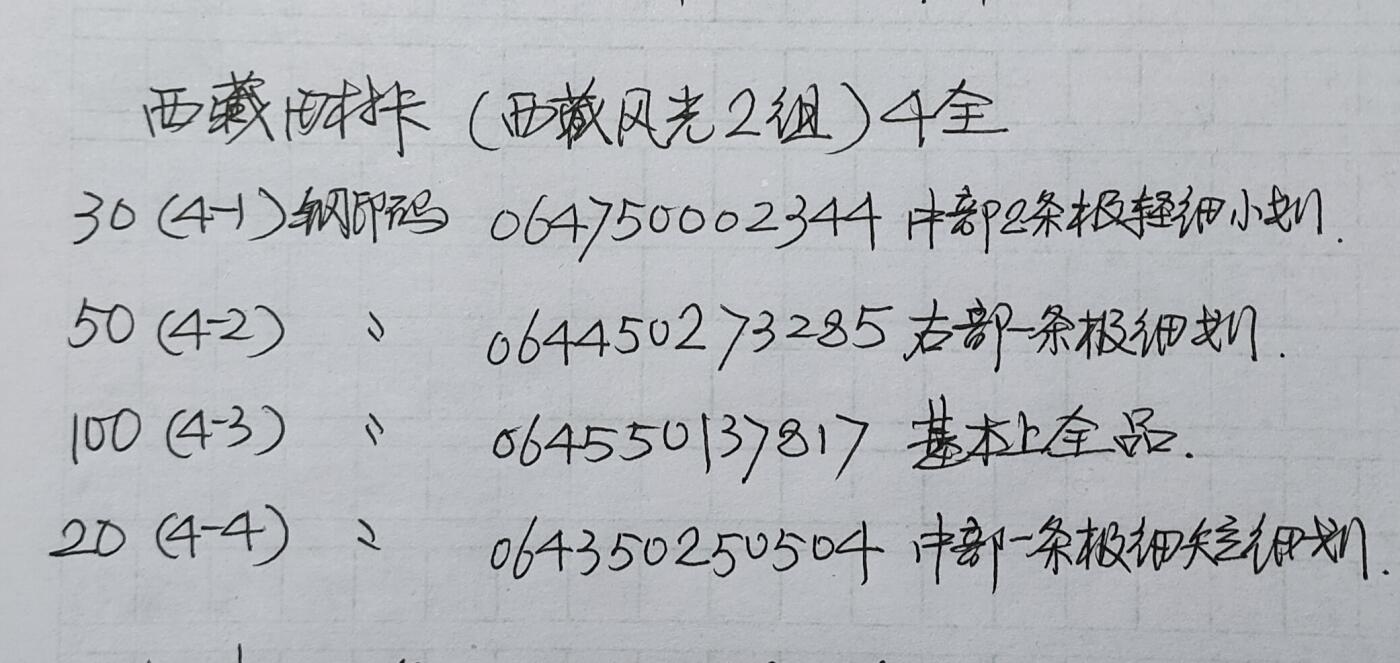 西藏田村卡（西藏风光2组）4全
30（4-1）钢印码 064750002344 中部2条极轻细小划.
50（4-2） 〃 064450273285 右部一条极细划.
100（4-3） 〃 064550137817 基本上全品.
20（4-4） 〃 064350250504 中部一条极细短细划.